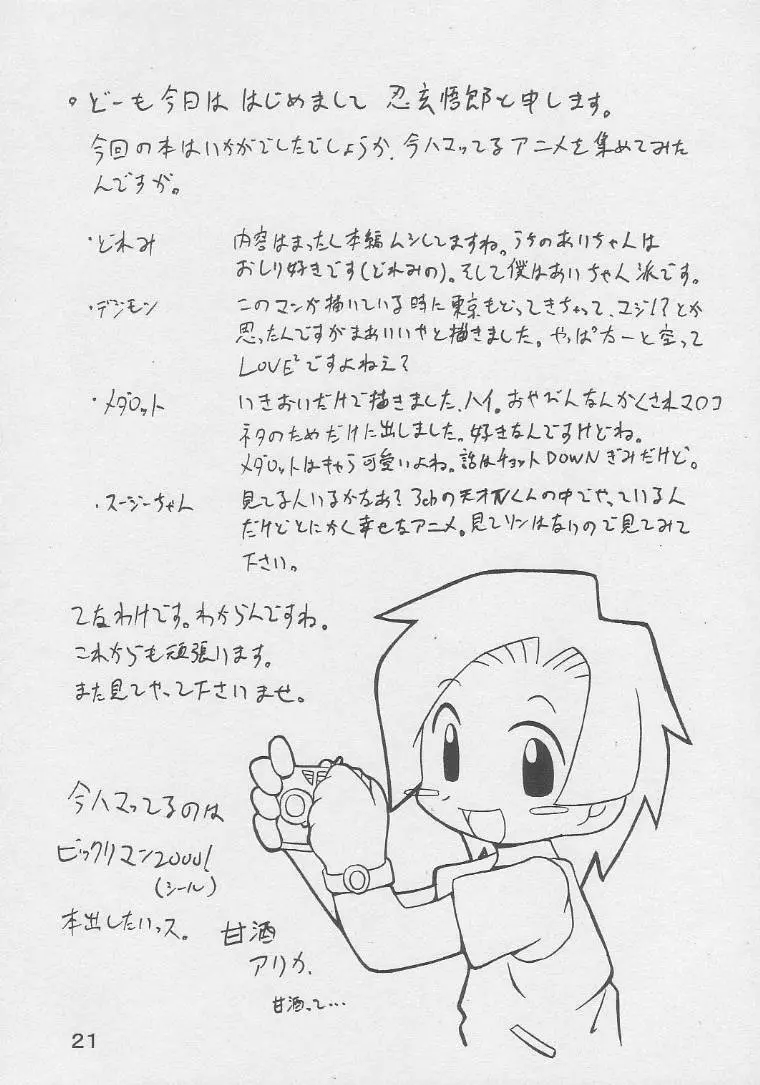 。どーも今日は はじめまして 忍玄悟郎と申します。
今回の本はいかがでしたでしょうか、今ハマってるアニメを集めてみた
んですが。
・どれみ 内容はまったく本編ムシしてますね。うちのあいちゃんは
おしり好きです(どれみの)。そして僕はあいちゃん派です。
・デジモン このマンガ描いている時に東京もどってきちゃって、マジ!?とか
思ったんですがまあいいやと描きました。やっぱ太一と空って
LOVE²ですよねえ?
・メダロット いきおいだけで描きました、ハイ。おやびんなんかくされマロコ
ネタのためだけに出しました。好きなんですけどね。
メダロットはキャラ可愛いよね。話はチョットDOWNぎみだけど。
・スージーちゃん 見てる人いるかなあ? 3chの天才くんの中でやっているん
だけどとにかく幸せなアニメ。見てソンはないので見てみて
下さい。
てなわけです。わからんですね。
これからも頑張います。
また見てやって下さいませ。
今ハマってるのは
ビックリマン2000!
(シール)
本出したいっス。
甘酒
アリカ、
甘酒って…
21